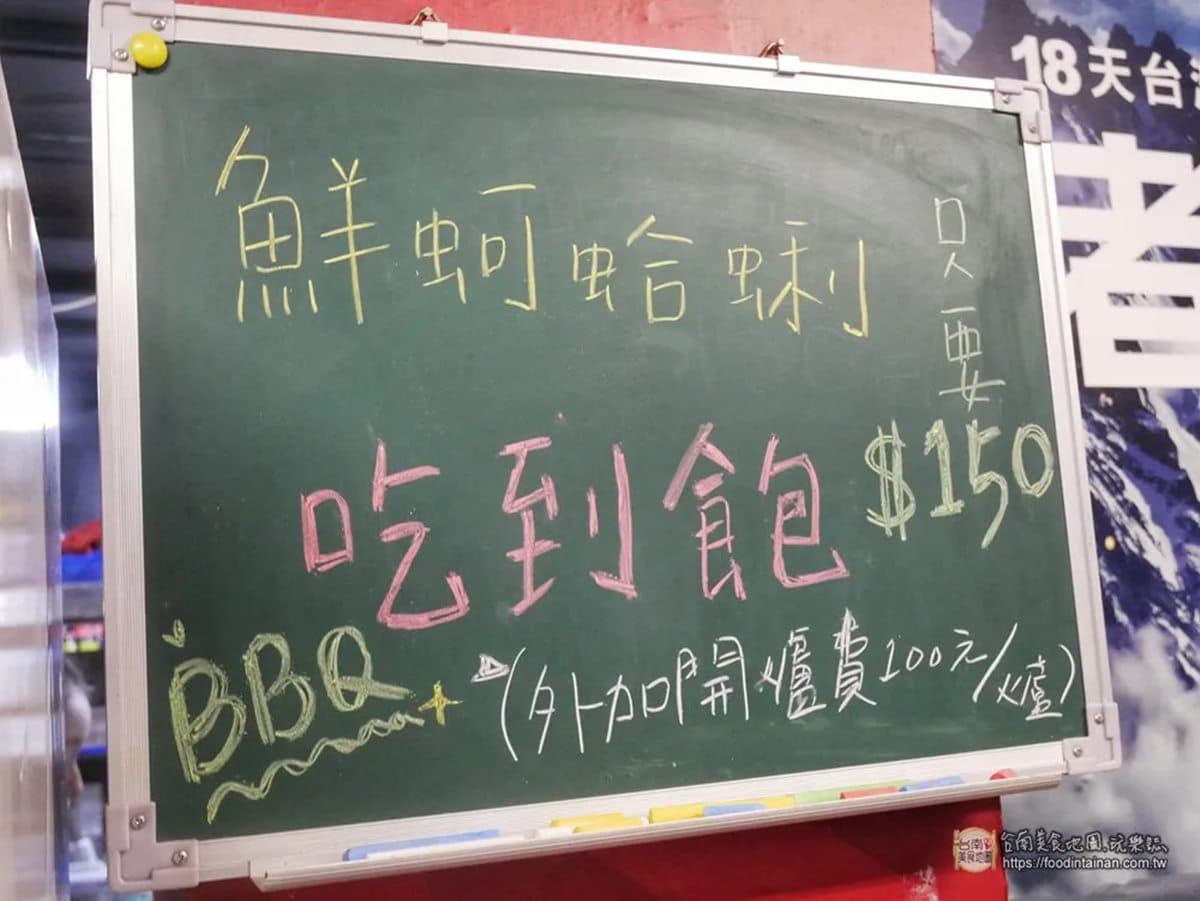 鮮蚵蛤蜊
只要
$150
吃到飽
BBQ
(外加開爐費100元/爐)
18天台
者
台南美食地圖
台南美食地圖.玩樂誌
https://foodintainan.com.tw